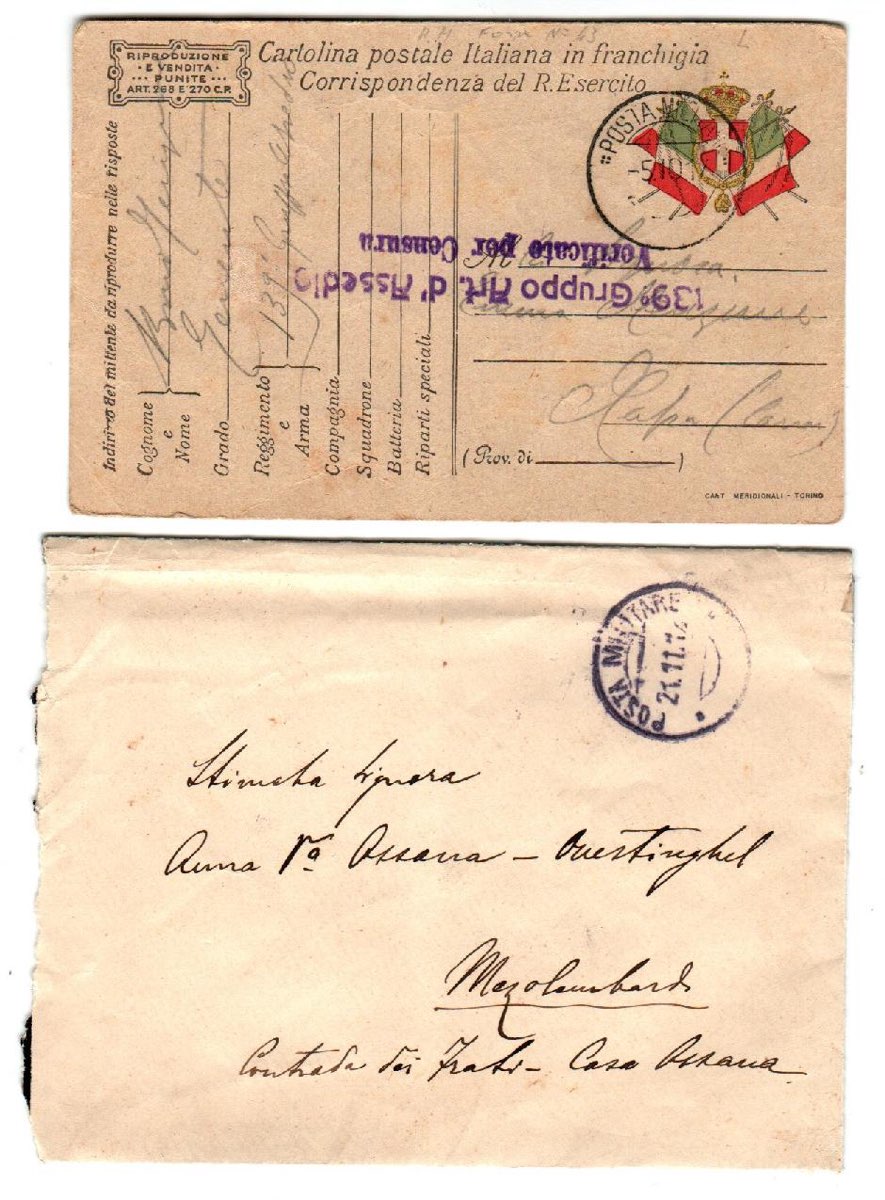 Form No 63
L
RIPRODUZIONE
E VENDITA
PUNITE
ART. 268 E 270 C.P.
Cartolina postale Italiana in franchigia
Corrispondenza del R. Esercito
POSTA MILITARE
-5.10.1
Indirizzo del mittente da riprodurre nelle risposte
Cognome
e
Nome
Grado
Reggimento
e
Arma
139° Gruppo Assedio
Compagnia
Squadrone
Batteria
Riparti speciali
139° Gruppo Art. d'Assedio
Verificato per Censura
(Prov. di )
CART MERIDIONALI - TORINO
POSTA MILITARE
21.11.18
Stimata Signora
Anna Va Ossana - Ouestinghel
Mezolombardo
Contrada dei Frati - Casa Ossana